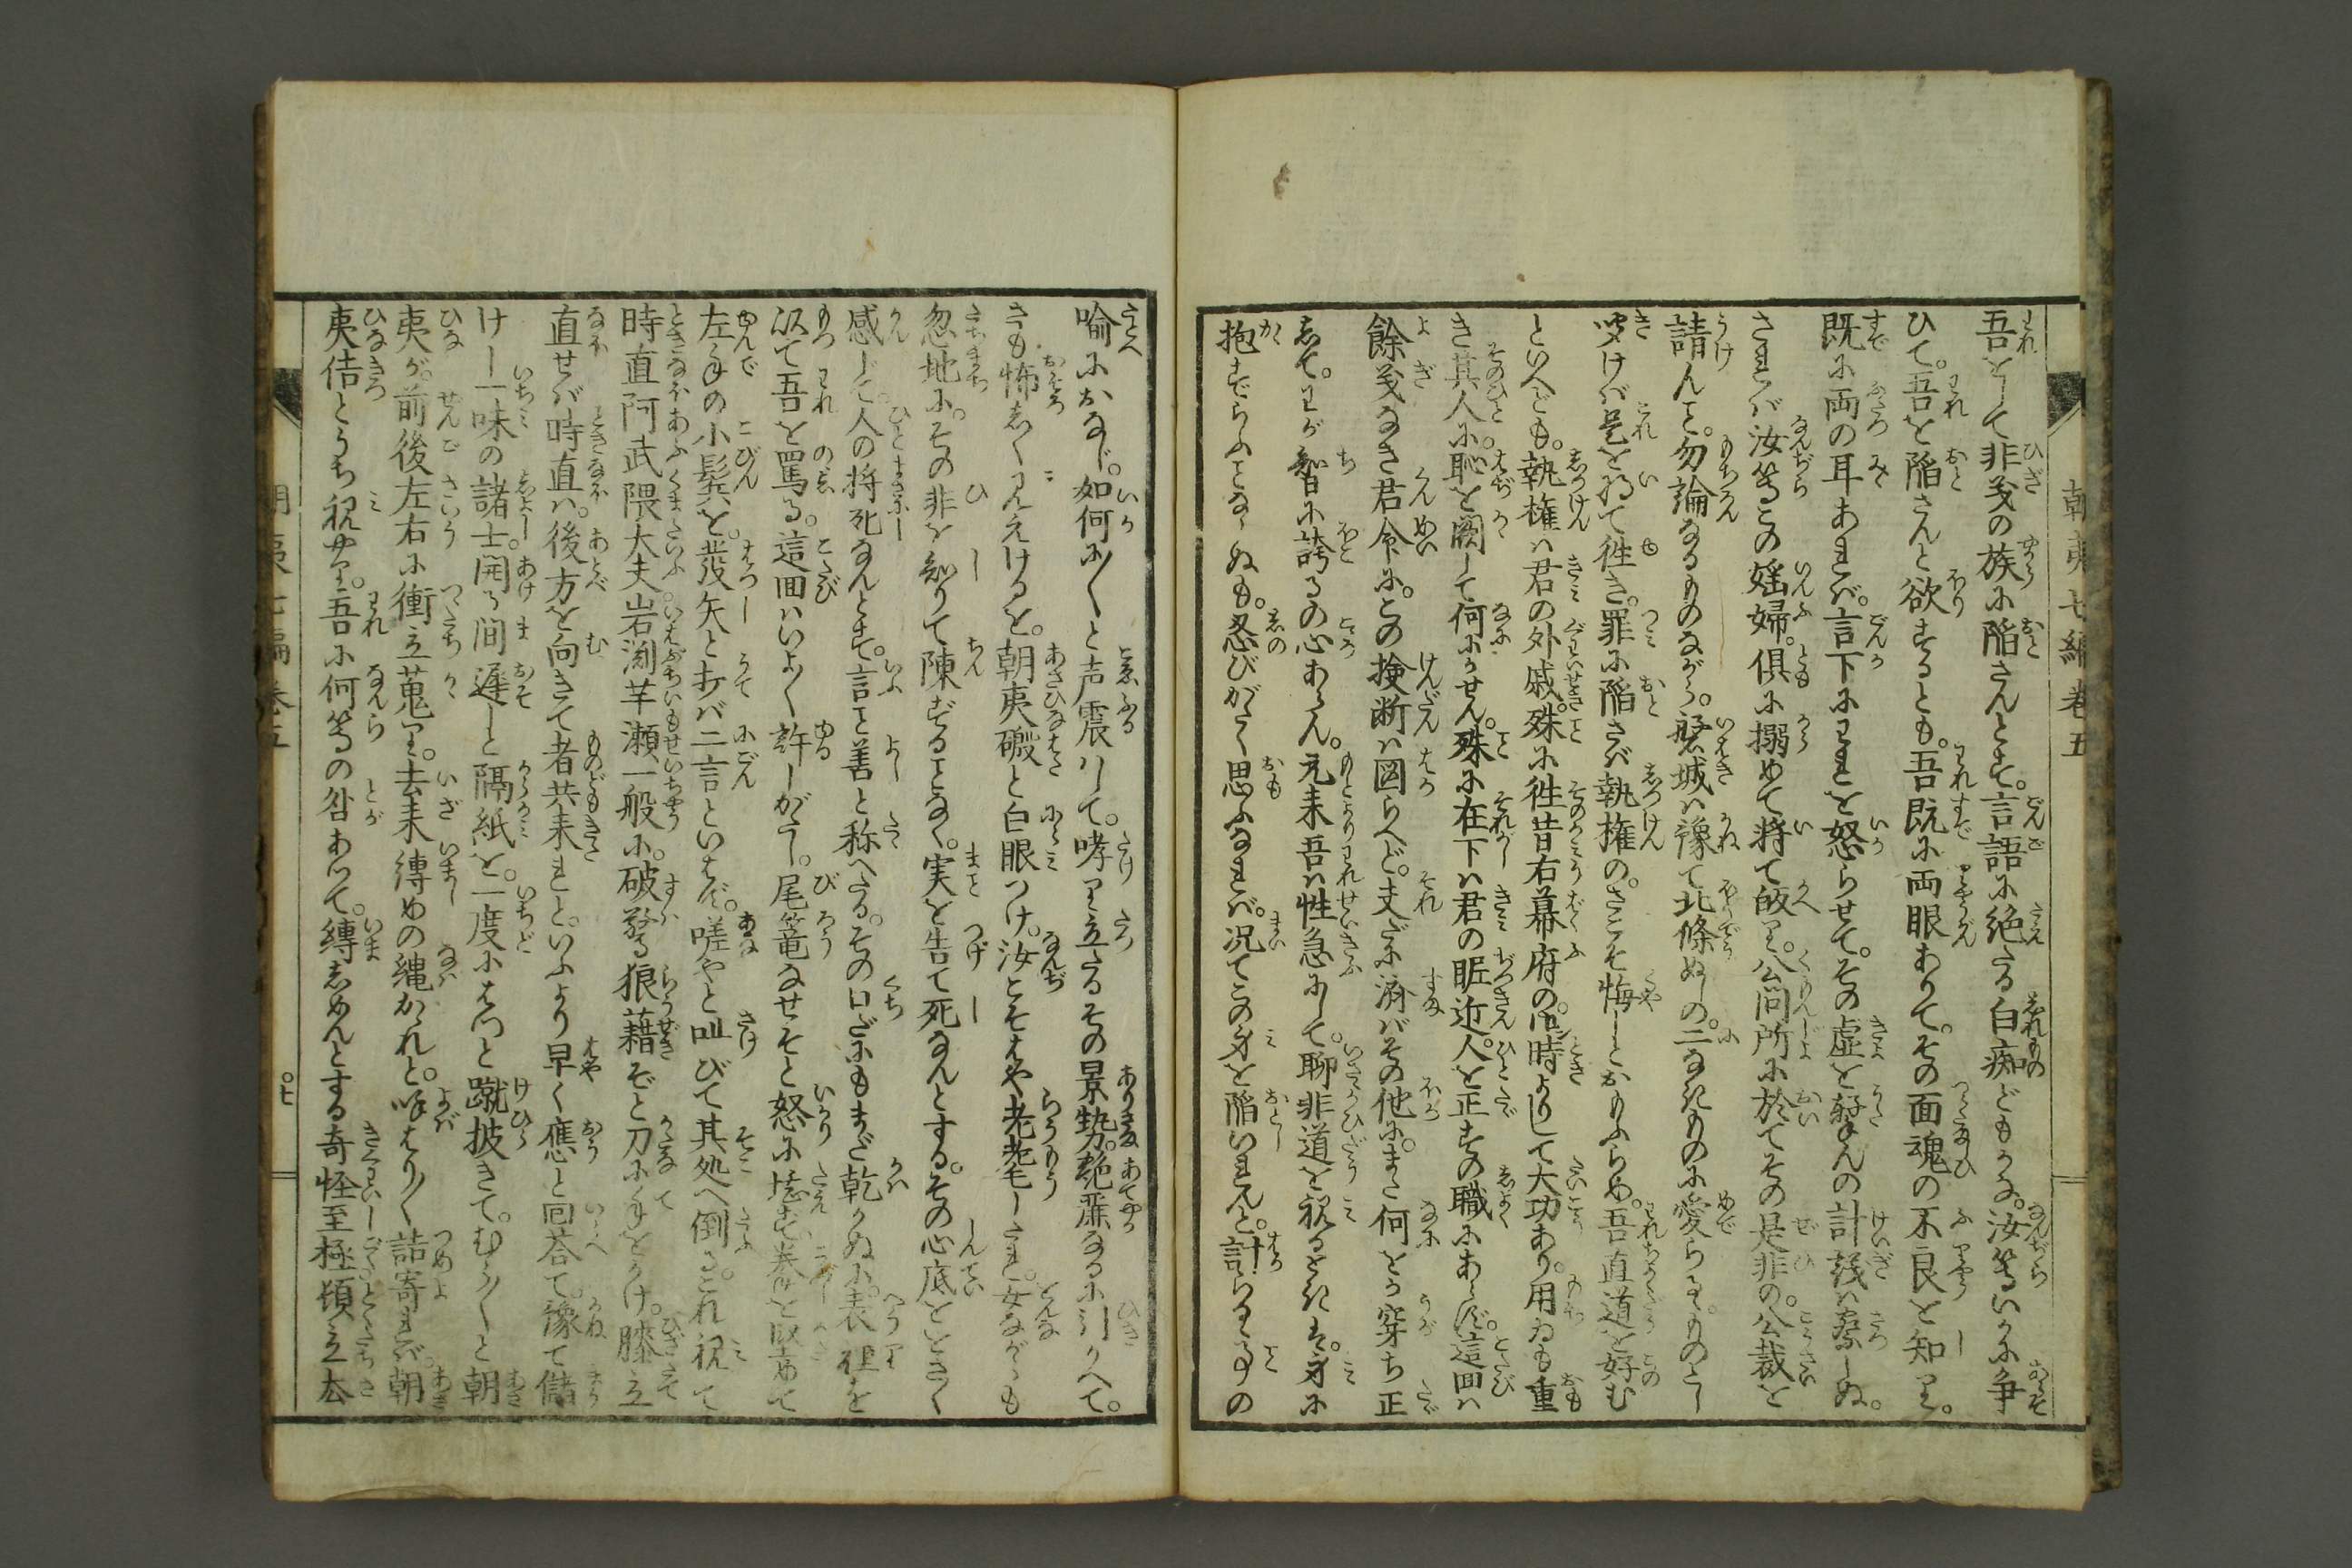 朝夷七編巻五
吾をして非義の族に陥さんとす。言語に絶たる白痴どもかな。汝等いかに争
ひて。吾を陥さんと欲するとも。吾既に両眼ありて。その面魂の不良を知れり。
既に両の耳あれば。言下にわれを怒らせて。その虚を撃んの計議は察しぬ。
されば汝等この婬婦。倶に搦めて将て皈り。公問所に於てその是非の。公裁を
請んこと。勿論なるものながら。磐城は豫て北條ぬしの。二なきものに愛らるゝものとし
聞けば是を将て徃き。罪に陥さば執権の。さこそ悔しとおもふらめ。吾直道を好む
といへども。執権は君の外戚。殊に徃昔右幕府の時よりして大功あり。用ゐも重
き其人に。恥を闕して何にかせん。殊に在下は君の昵近人を正すの職にあらず。這回は
餘義なき君命に。この撿断は図らへど。夫だに済ばその他に。また何をか穿ち正
して。わが智に誇るの心あらん。元来吾は性急にして。聊非道を視るときは。身に
抱ずらふことならぬも。忍びがたく思ふなれば。况てこの身を陥いれんと。計らるゝ事の
喩におなじ。如何に〳〵と声震はして。哮り立たるその景勢。艶麗なるに引かへて。
さも怖しく見えけるを。朝夷礑と白眼つけ。汝とそはや老耄したれ。女ながらも
忽地に。その非を知りて陳ずることなく。実を告て死なんとする。その心底をいさゝ
感じて。人の将死なんとす。言こと善と称へたる。その口だにもまだ乾かぬに。表裡を
以て吾を罵る。這回はいよ〳〵許しがたし。尾篭なせそと怒に堪ず拳を堅めて
左手の小鬂を。發矢と打ば二言といはず。嗟やと叫びて其処へ倒る。これ視て
時直阿武隈大夫。岩渕芋瀬一般に。破驚狼藉ぞと刀に手をかけ。膝立
直せば時直は。後方を向きて者共来れと。いふより早く應と回荅て。豫て儲
けし一味の諸士。開る間遅しと隔紙を。一度にはたと蹴披きて。むら〳〵と朝
夷が。前後左右に衝立蒐り。去来縛めの縄かゝれと。呼はり〳〵詰寄れば。朝
夷佶とうち視やり。吾に何等の咎あつて。縛しめんとする奇怪至極頓立去
朝夷七編巻五
〇七